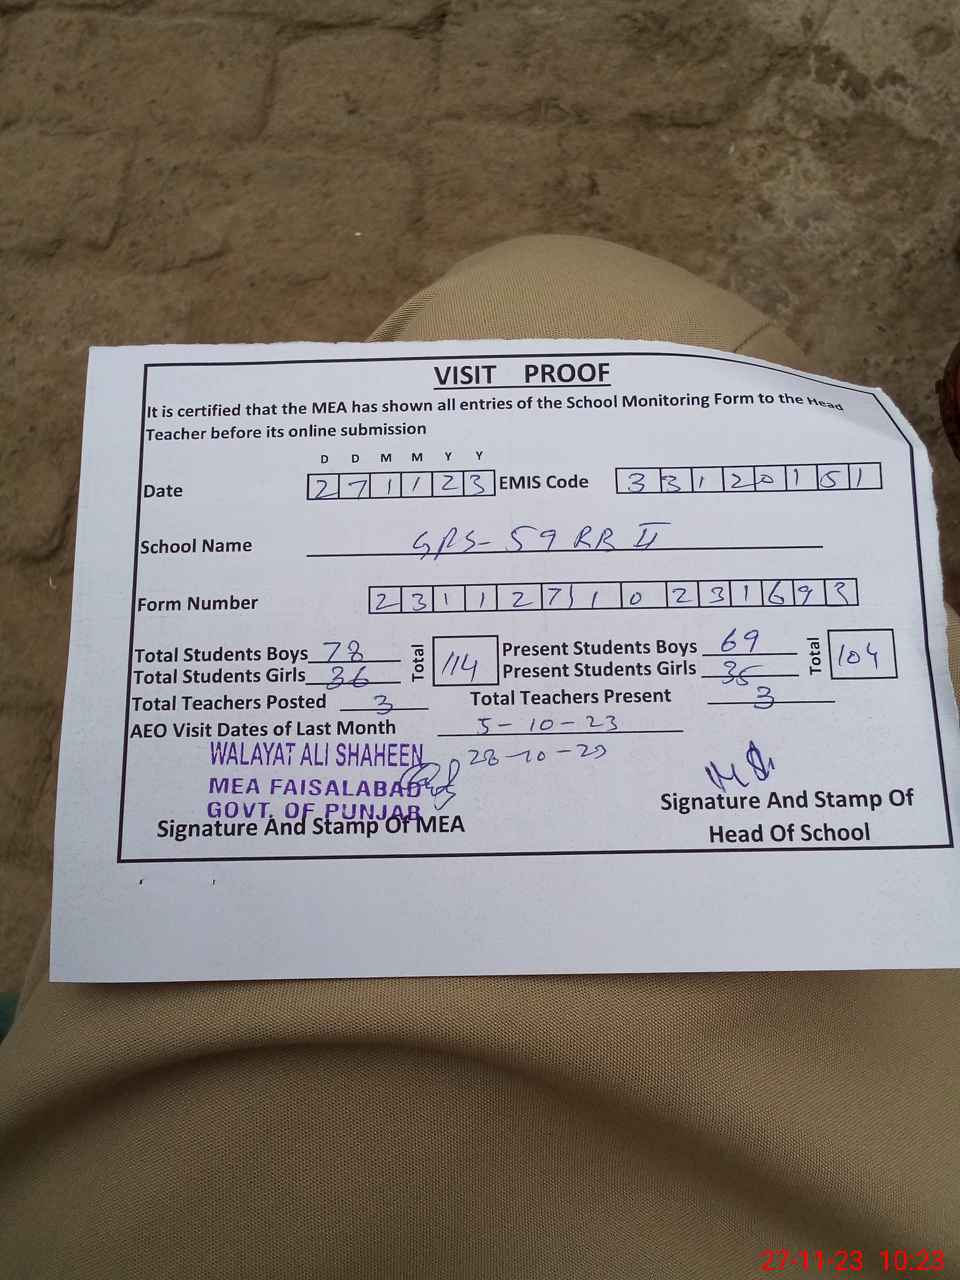 VISIT PROOF
It is certified that the MEA has shown all entries of the School Monitoring Form to the Head
Teacher before its online submission
D D M M Y Y
Date 271123 EMIS Code 33120151
School Name GPS-59 RB II
Form Number 23112710231693
Total Students Boys 78 Total 114 Present Students Boys 69 Total 104
Total Students Girls 36 Present Students Girls 35
Total Teachers Posted 3 Total Teachers Present 3
AEO Visit Dates of Last Month 5-10-23
28-10-23
WALAYAT ALI SHAHEEN
MEA FAISALABAD
GOVT. OF PUNJAB
Signature And Stamp Of MEA
Signature And Stamp Of
Head Of School
27-11-23 10:23